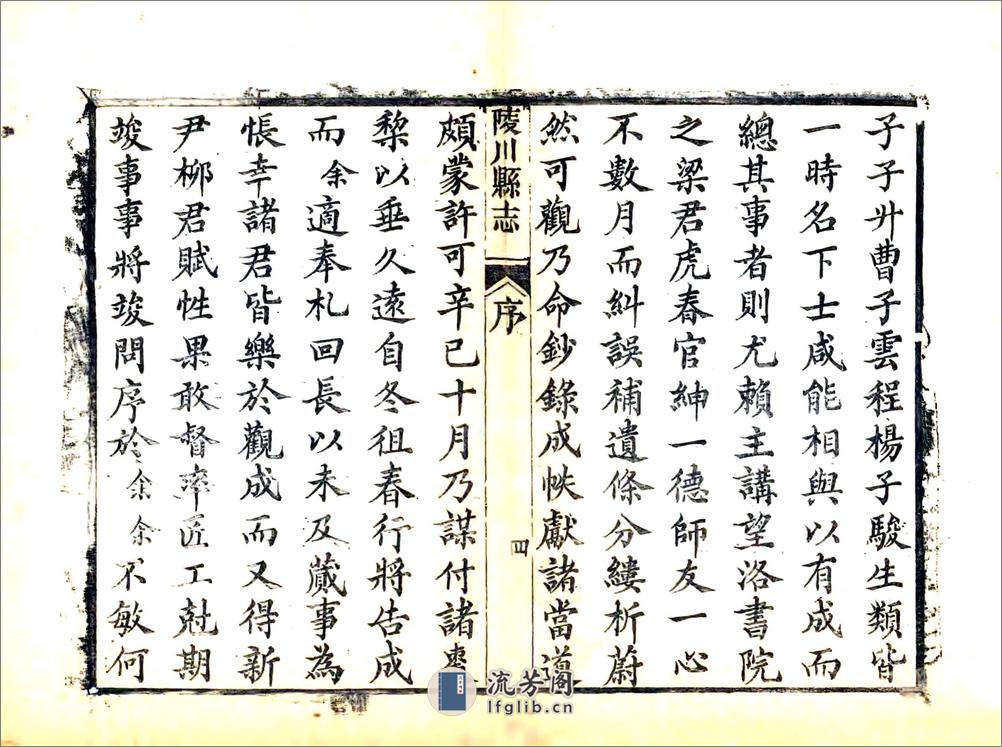 子子廾曹子雲程楊子駿生類皆
一時名下士咸能相與以有成而
總其事者則尤賴主講望洛書院
之梁君虎春官紳一德師友一心
不數月而糾誤補遺條分縷析蔚
然可觀乃命鈔錄成帙獻諸當道
陵川縣志
序
四
頗蒙許可辛巳十月乃謀付諸棗
棃以垂久遠自冬徂春行將告成
而余適奉札回長以未及蕆事為
悵幸諸君皆樂於觀成而又得新
尹栁君賦性果敢督率匠工尅期
竣事事將竣問序於余余不敏何
流芳阁
lfglib.cn